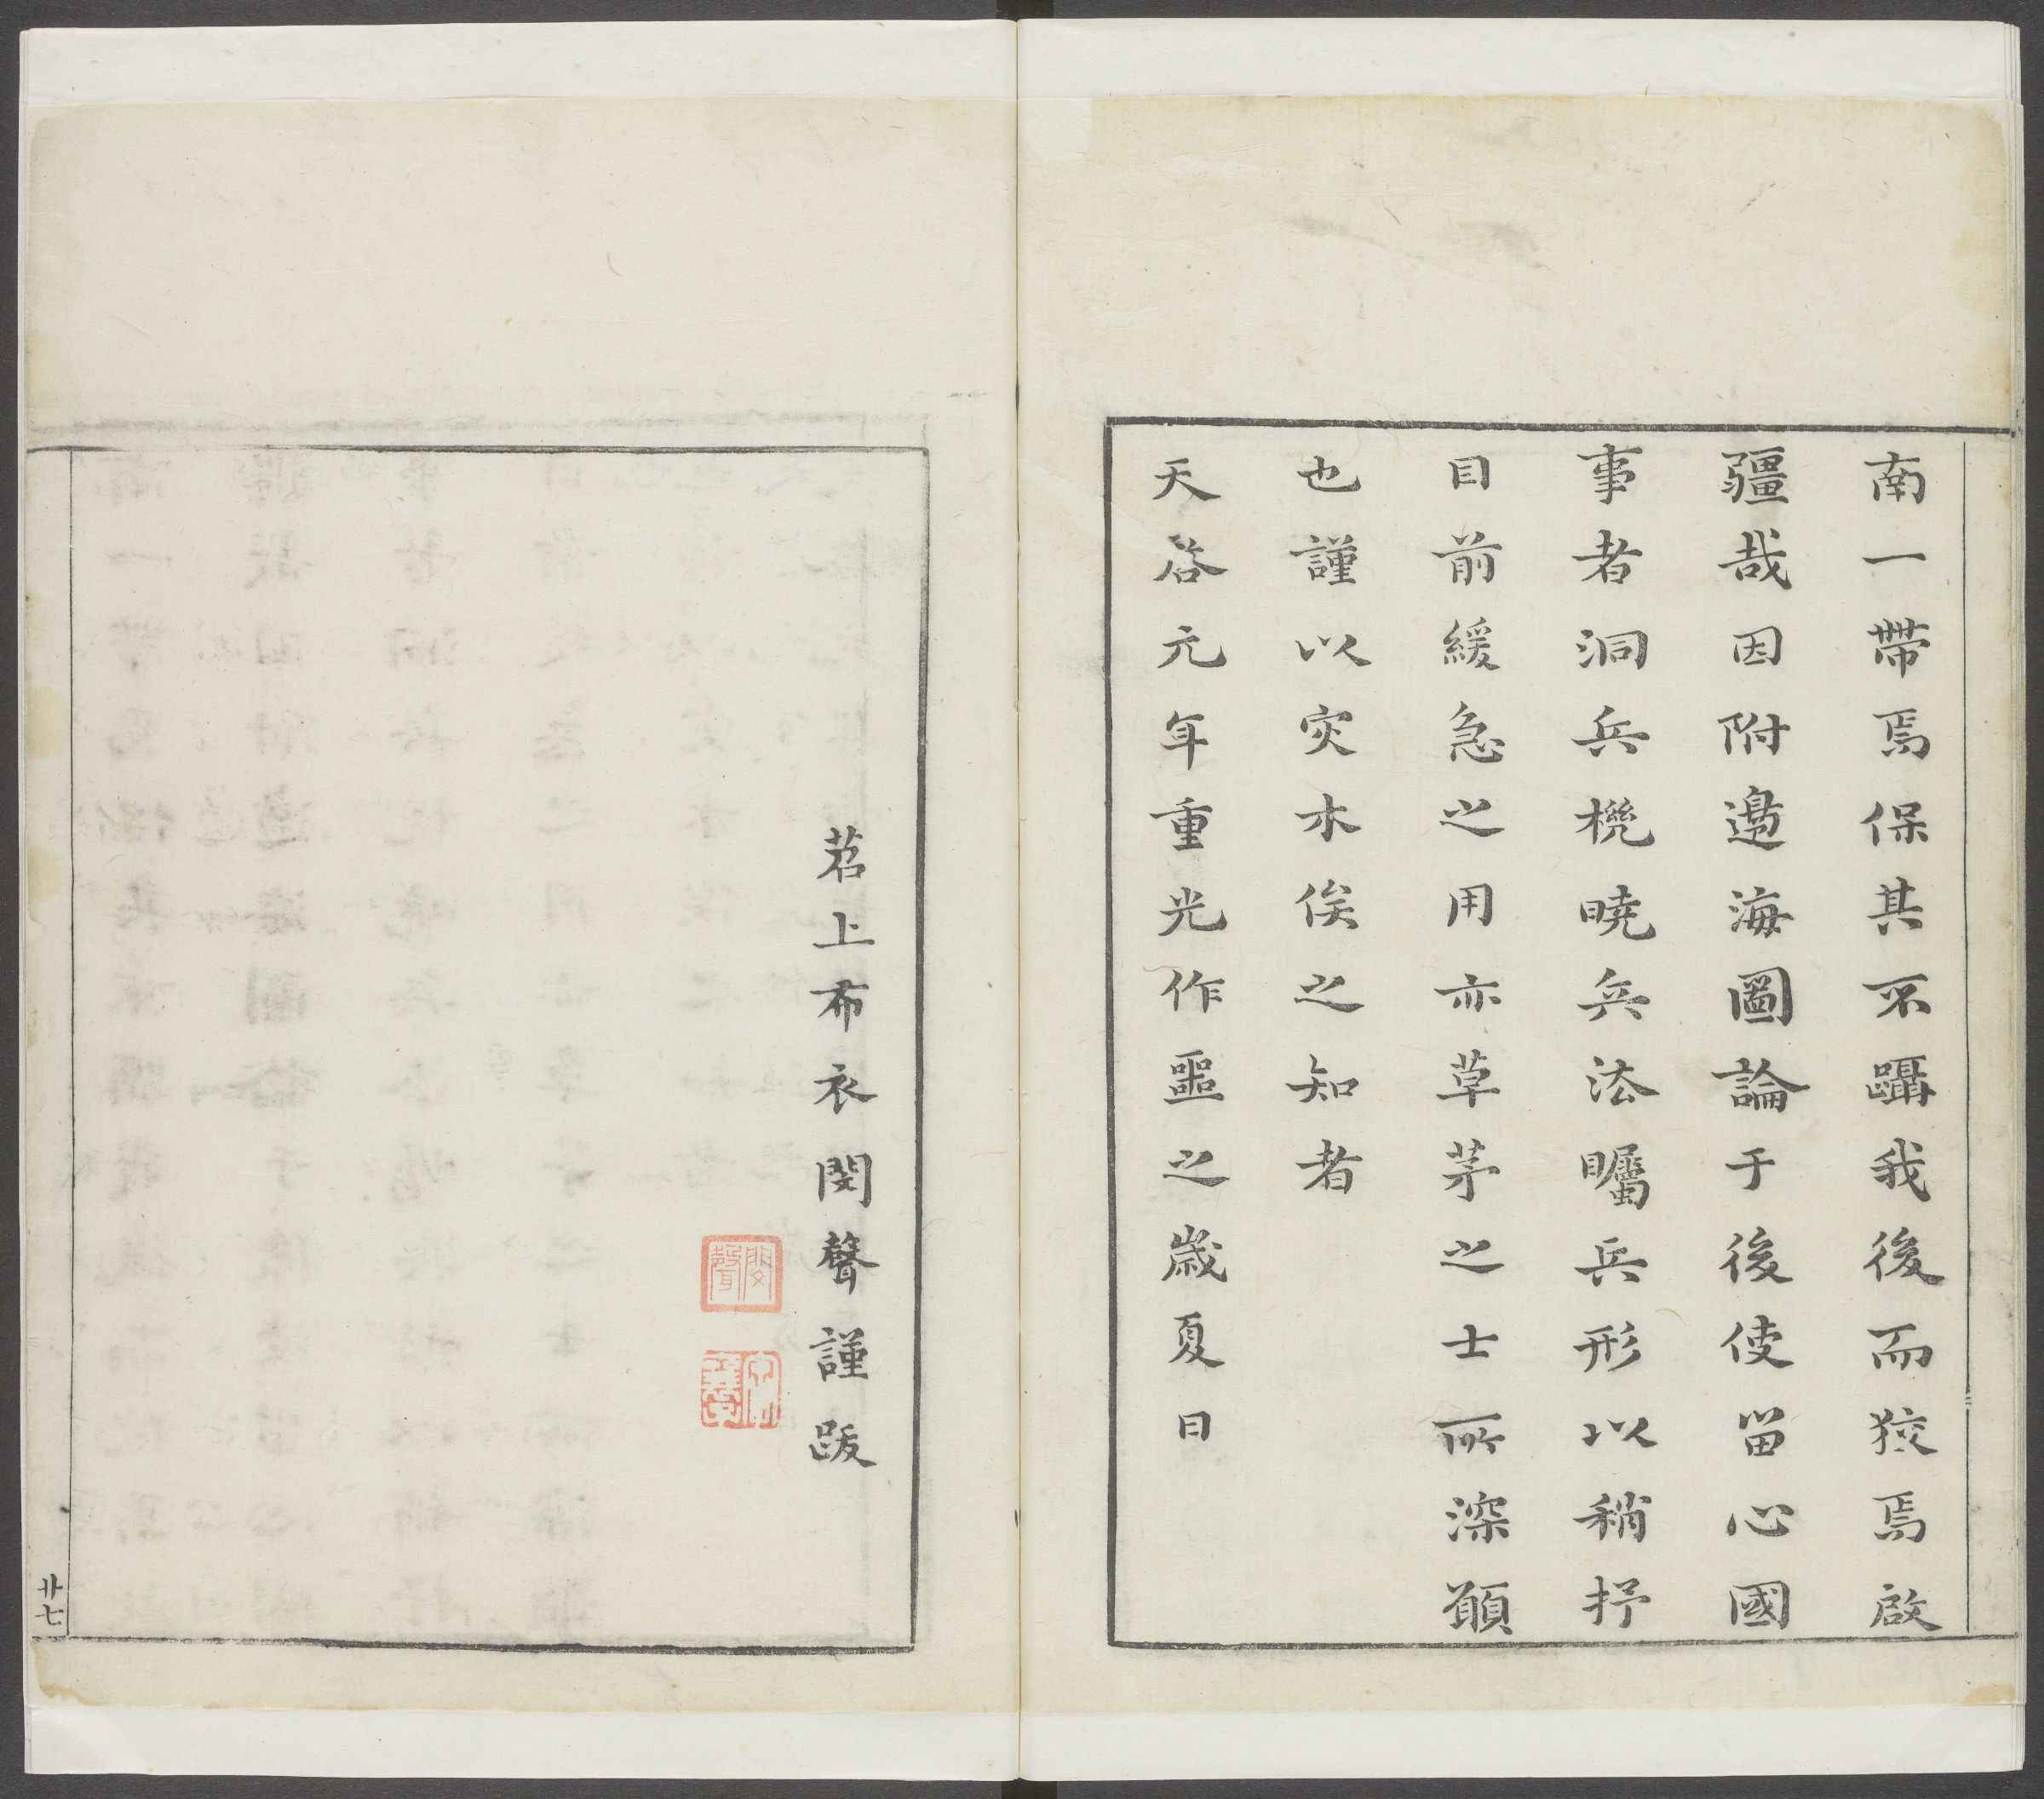 南一帶焉保其不躡我後而狡焉啟
疆哉因附邊海圖論于後使留心國
事者洞兵機曉兵法矚兵形以稍抒
目前緩急之用亦草茅之士所深願
也謹以灾木俟之知者
天啓元年重光作噩之歲夏日
苕上布衣閔聲謹跋
閔聲
廿七